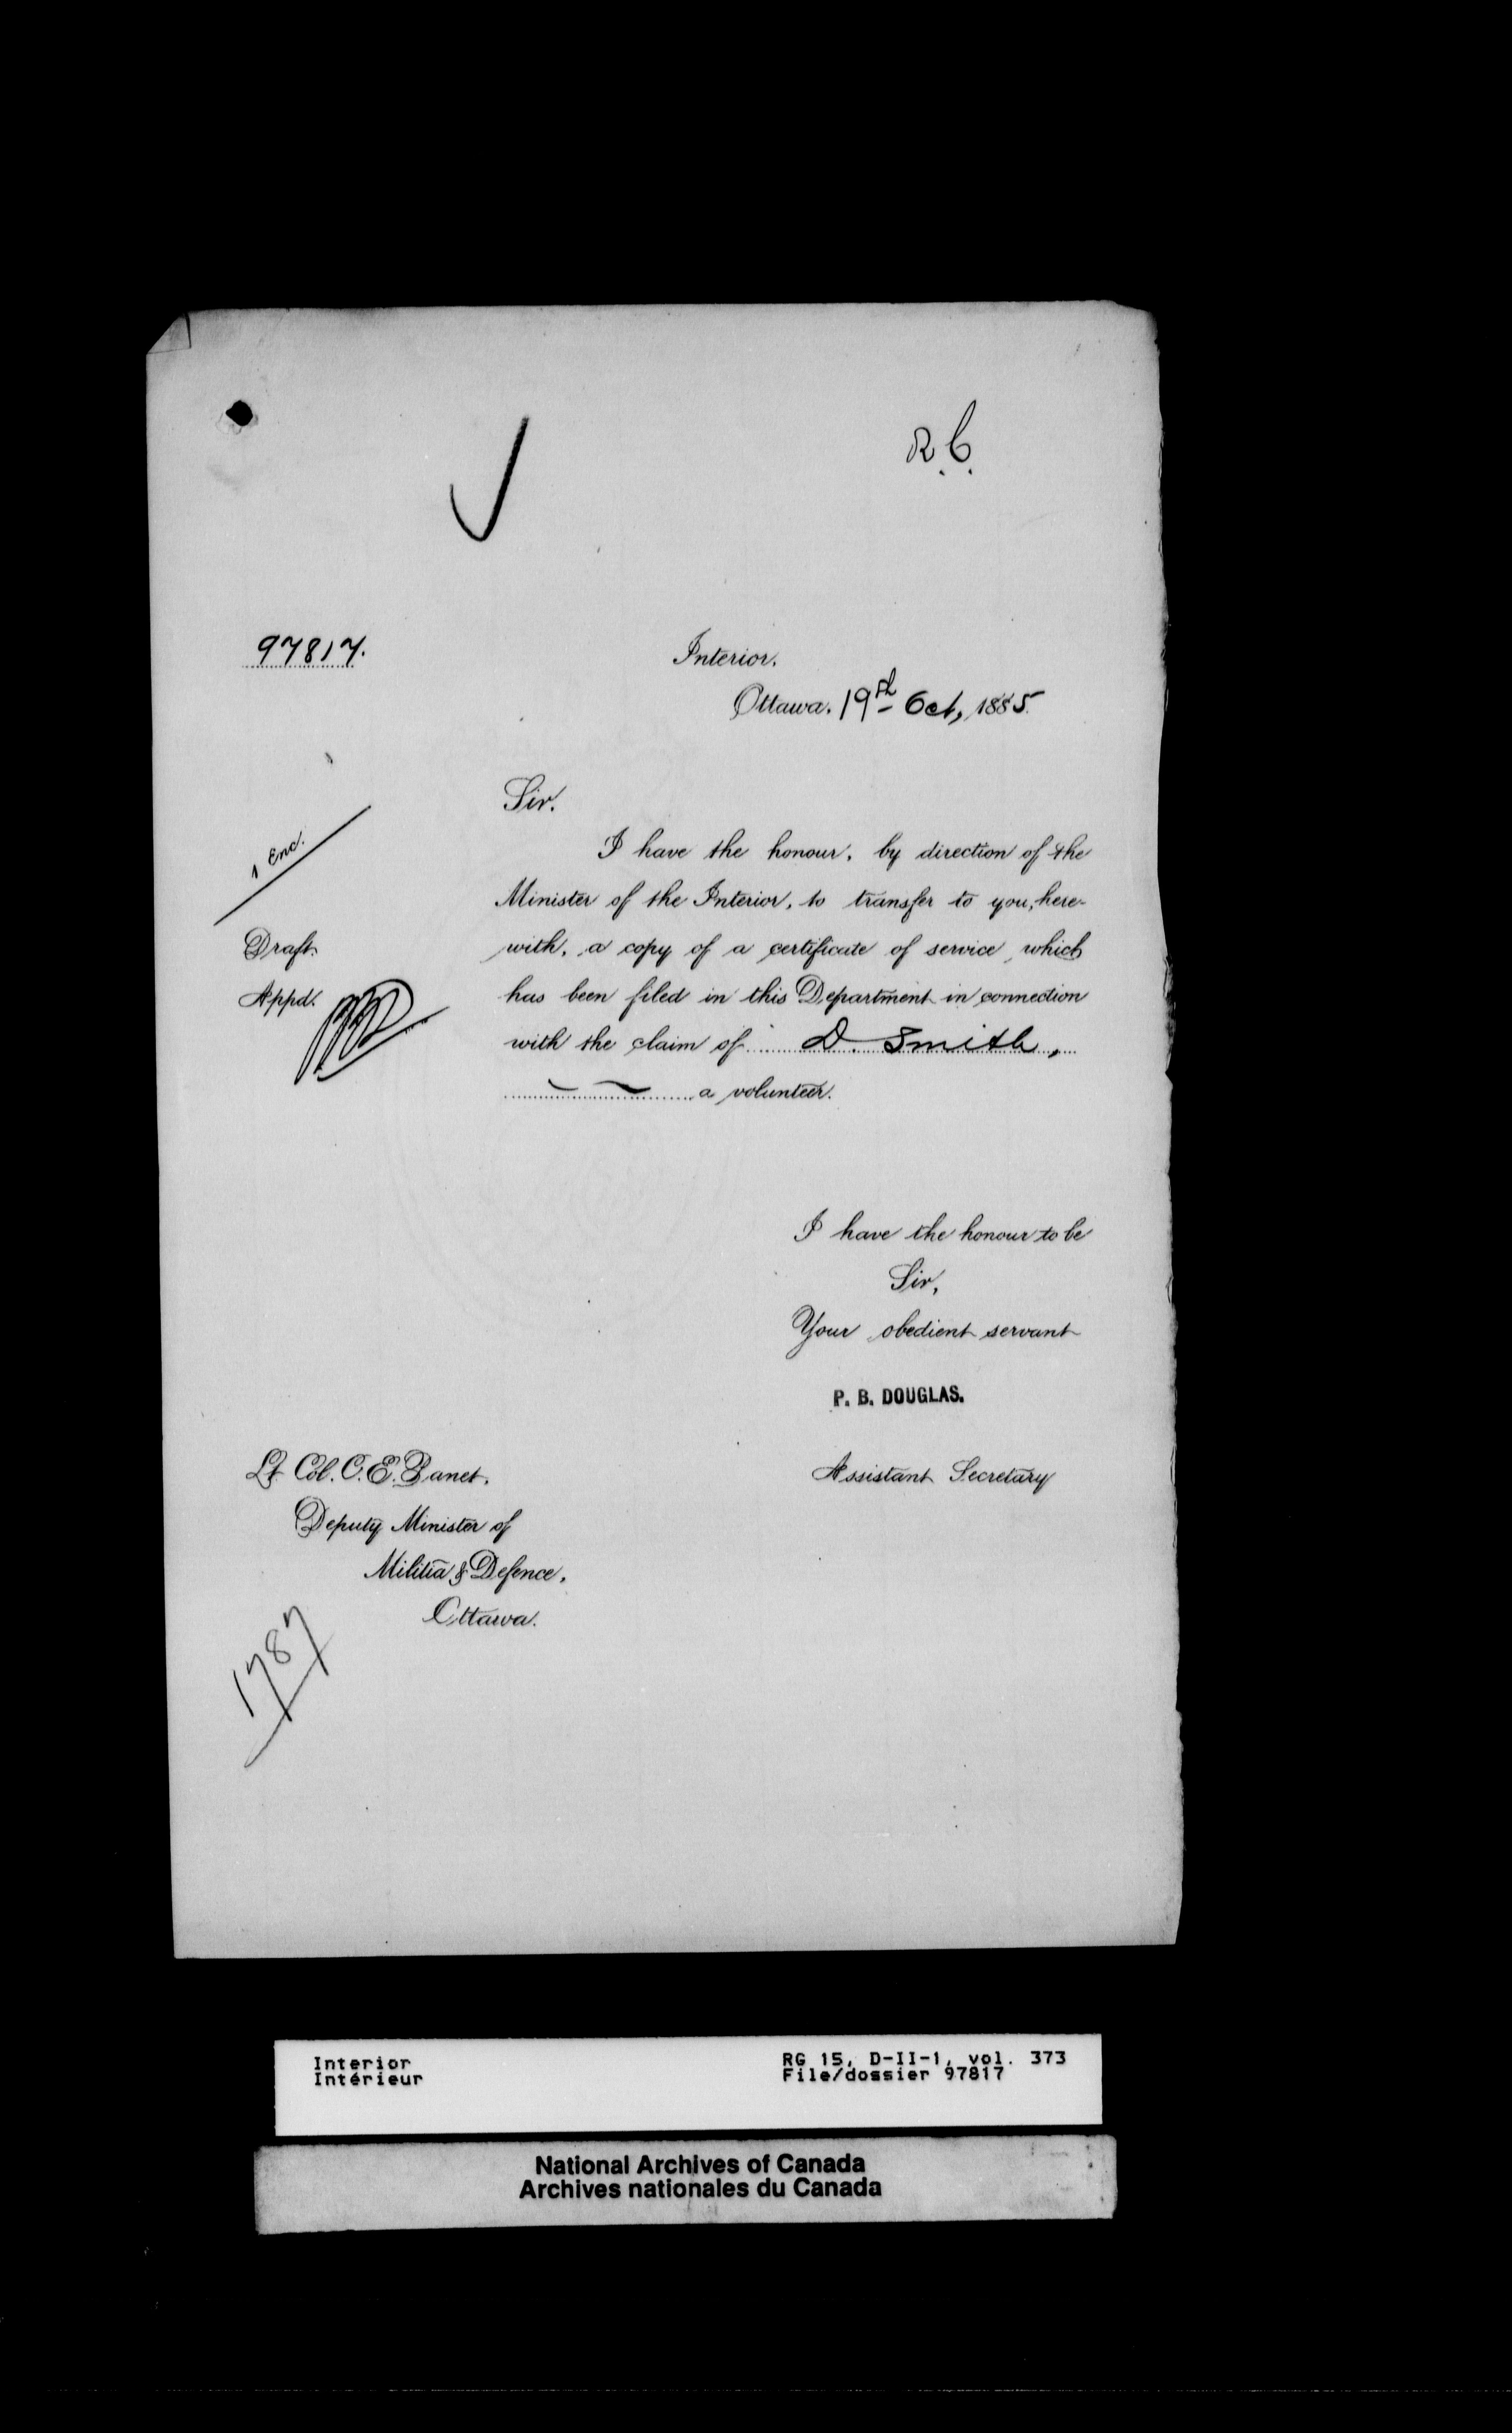 R.C.
97817.
Interior.
Ottawa. 19th Oct, 1885.
Sir.
1 Enc.
I have the honour, by direction of the
Minister of the Interior, to transfer to you, here-
Draft.
with, a copy of a certificate of service, which
Appd.
has been filed in this Department in connection
with the claim of D. Smith,
a volunteer.
I have the honour to be
Sir,
Your obedient servant
P. B. DOUGLAS.
Lt. Col. C. E. Panet,
Assistant Secretary
Deputy Minister of
Militia & Defence,
Ottawa.
1787
Interior
Intérieur
RG 15, D-II-1, vol. 373
File/dossier 97817
National Archives of Canada
Archives nationales du Canada